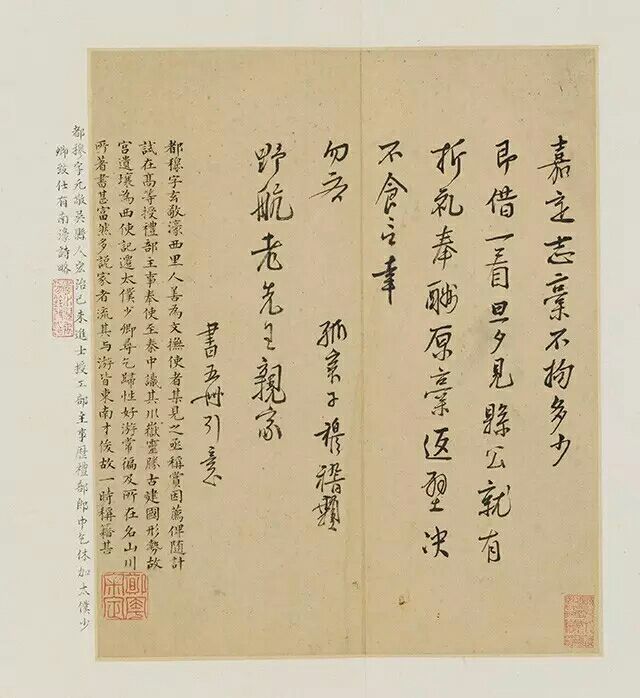 嘉定志藁不拘多少
即借一看旦夕見縣公就有
折礼奉酬原藁返璧决
不食言幸
勿吝
孤哀子穆稽顙
野航老先生親家
書五冊引意
都穆字玄敬濠西里人善為文撫使者某見之亟稱賞因薦俾隨計
試在高等授禮部主事奉使至秦中識其川嶽靈勝古建國形勢故
宮遺壤為西使記遷太僕少卿尋乞歸性好游常徧及所在名山川
所著書甚富然多說家者流其与游皆東南才俊故一時稱籍甚
都穆字元敬吳縣人宏治己未進士授工部主事歷禮部郎中乞休加太僕少
卿致仕有南濠詩略